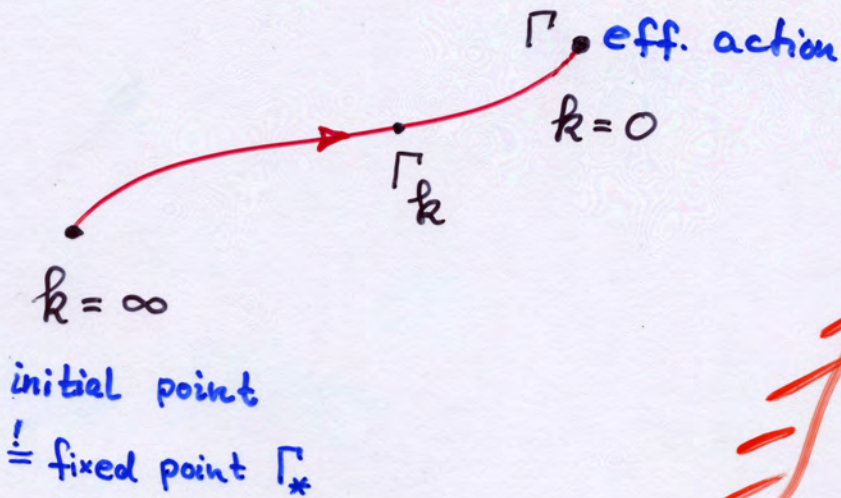 Γ eff. action
k = 0
Γ_k
k = ∞
initial point
!
= fixed point Γ_*